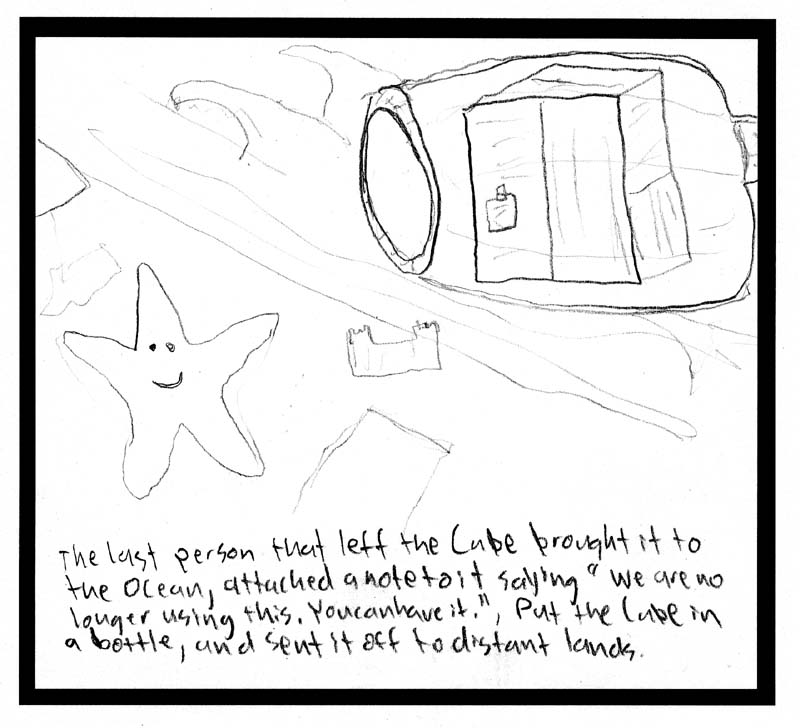 The last person that left the Cube brought it to
the Ocean, attached a note to it saying "We are no
longer using this. You can have it.", Put the Cube in
a bottle, and sent it off to distant lands.